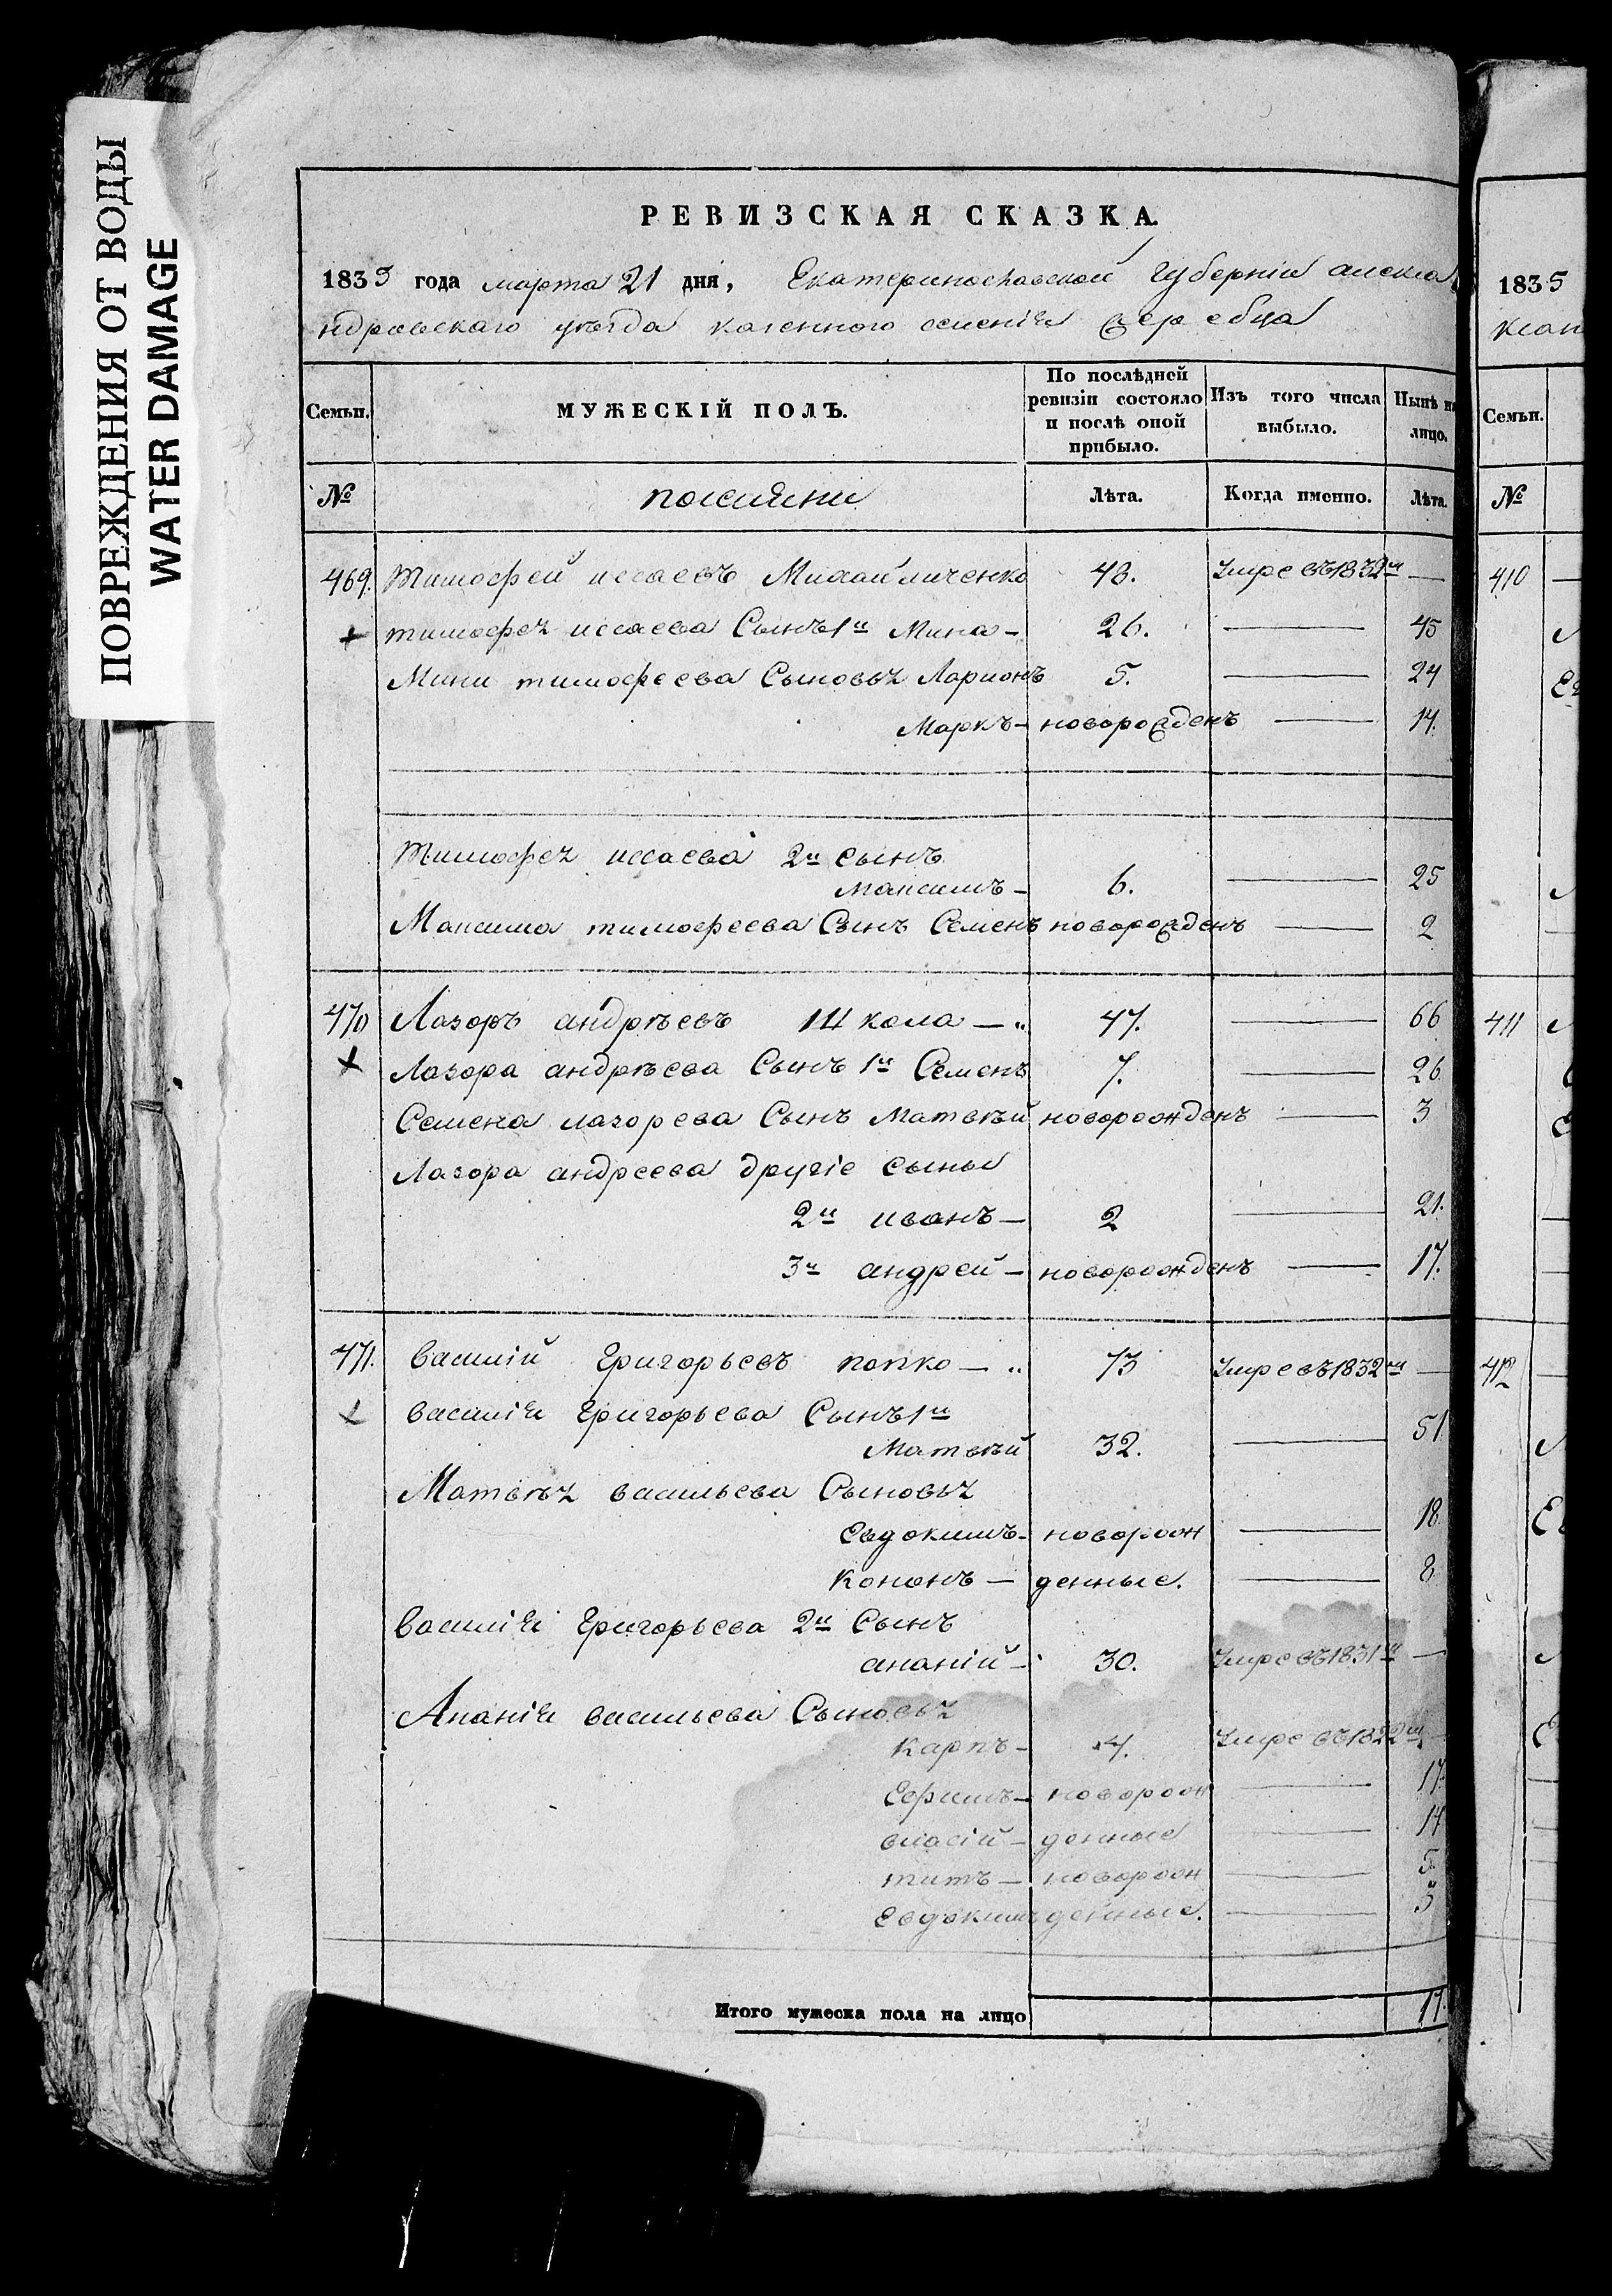 ПОВРЕЖДЕНИЯ ОТ ВОДЫ
WATER DAMAGE
РЕВИЗСКАЯ СКАЗКА.
1835 года марта 21 дня, Екатеринославской Губерніи алекса
ндровскаго уѣзда казенного селенія Жеребца
Семьи. МУЖЕСКІЙ ПОЛЪ. По послѣдней ревизіи состояло и послѣ оной прибыло. Изъ того числа выбыло. Нынѣ на лицо.
№ поселяни Лѣта. Когда именно. Лѣта.
469. Тимофей иссаевъ Михайличенко 43. Умре въ 1832мъ —
тимофея иссаева Сынъ 1й Мина — 26. — 45
Мини тимофеева Сыновья Ларионъ 5. — 24
Маркъ — новорожденъ — 14.
Тимофея иссаева 2й сынъ
максимъ — 6. — 25
Максима тимофеева Сынъ Семенъ новорожденъ — 2
470 Лазоръ андрѣевъ Школа — „ 47. — 66
Лазора андрѣева Сынъ 1й Семенъ 7. — 26
Семена лазорева Сынъ Матвѣй новорожденъ — 3
Лазора андреева другіе сыны
2й иванъ — 2 — 21.
3й андрей — новорожденъ — 17.
471. василій Григорьевъ попко — „ 73 Умре въ 1832мъ —
василія Григорьева Сынъ 1й
Матвѣй 32. — 51.
Матвѣя васильева Сыновья
Евдокимъ — новорож — 18.
Кононъ — денные. — 8
василія Григорьева 2й Сынъ
ананій — 30. Умре въ 1831м —
Ананія васильева Сыновья
Карпъ — 4. Умре въ 1822мъ —
Ефимъ — новорож — 17.
власій — денные — 14
титъ — новорож — 5.
Евдокимъ денные. — 3
Итого мужеска пола на лицо 17.
1835
Семьи.
№
410
411
412